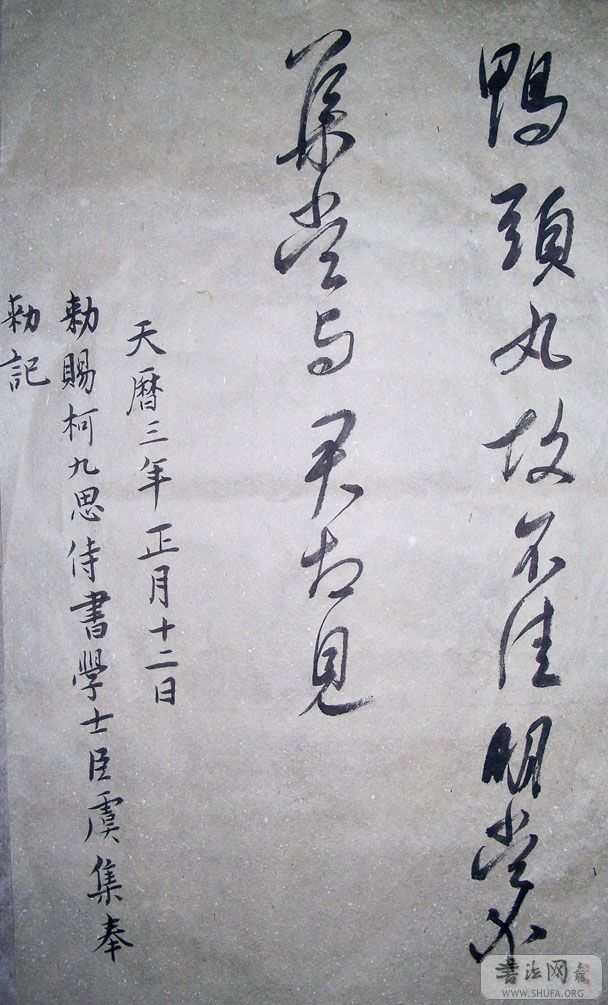 鴨頭丸故不佳明當必
集當与君相見
天曆三年正月十二日
勅賜柯九思侍書學士臣虞集奉
勅記
書法网
WWW.SHUFA.ORG